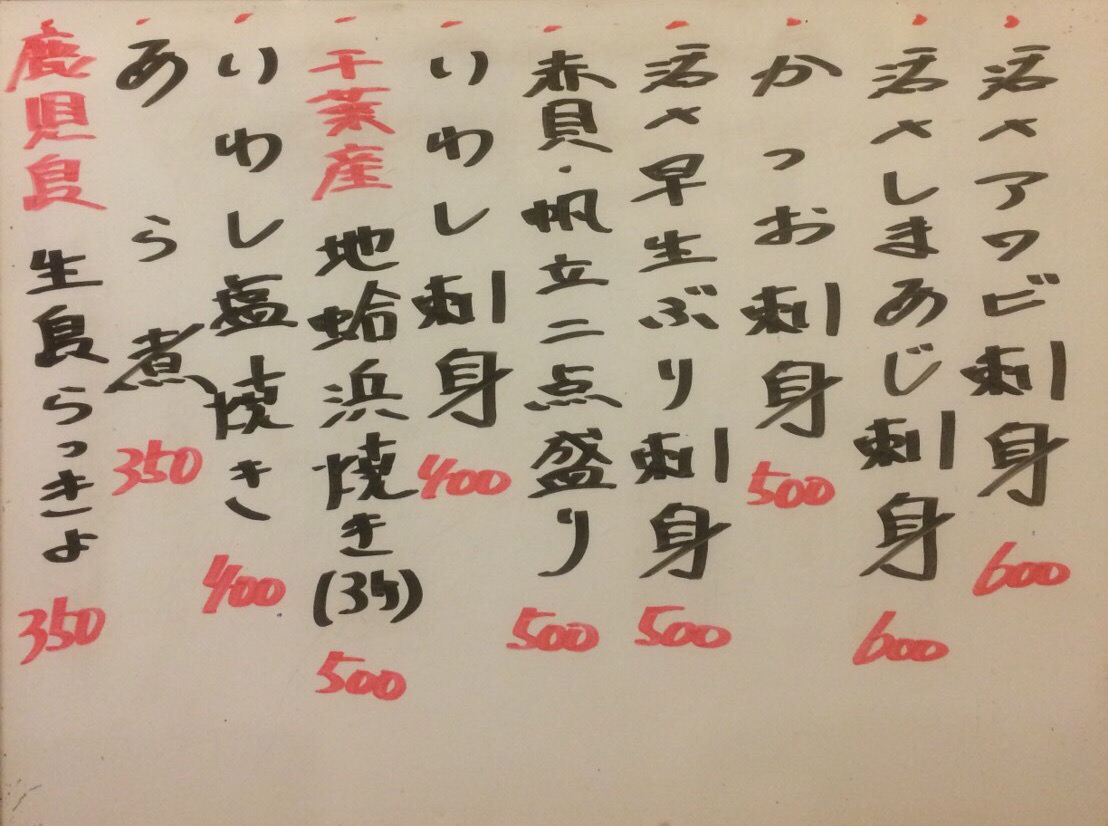 ・活〆アワビ刺身 600
・活〆しまあじ刺身 600
・かつお刺身 500
・活〆早生ぶり刺身 500
・赤貝・帆立二点盛り 500
・いわし刺身 400
・千葉産 地蛤浜焼き(3ケ) 500
・いわし塩焼き 400
・あら煮 350
・鹿児島 生島らっきょ 350